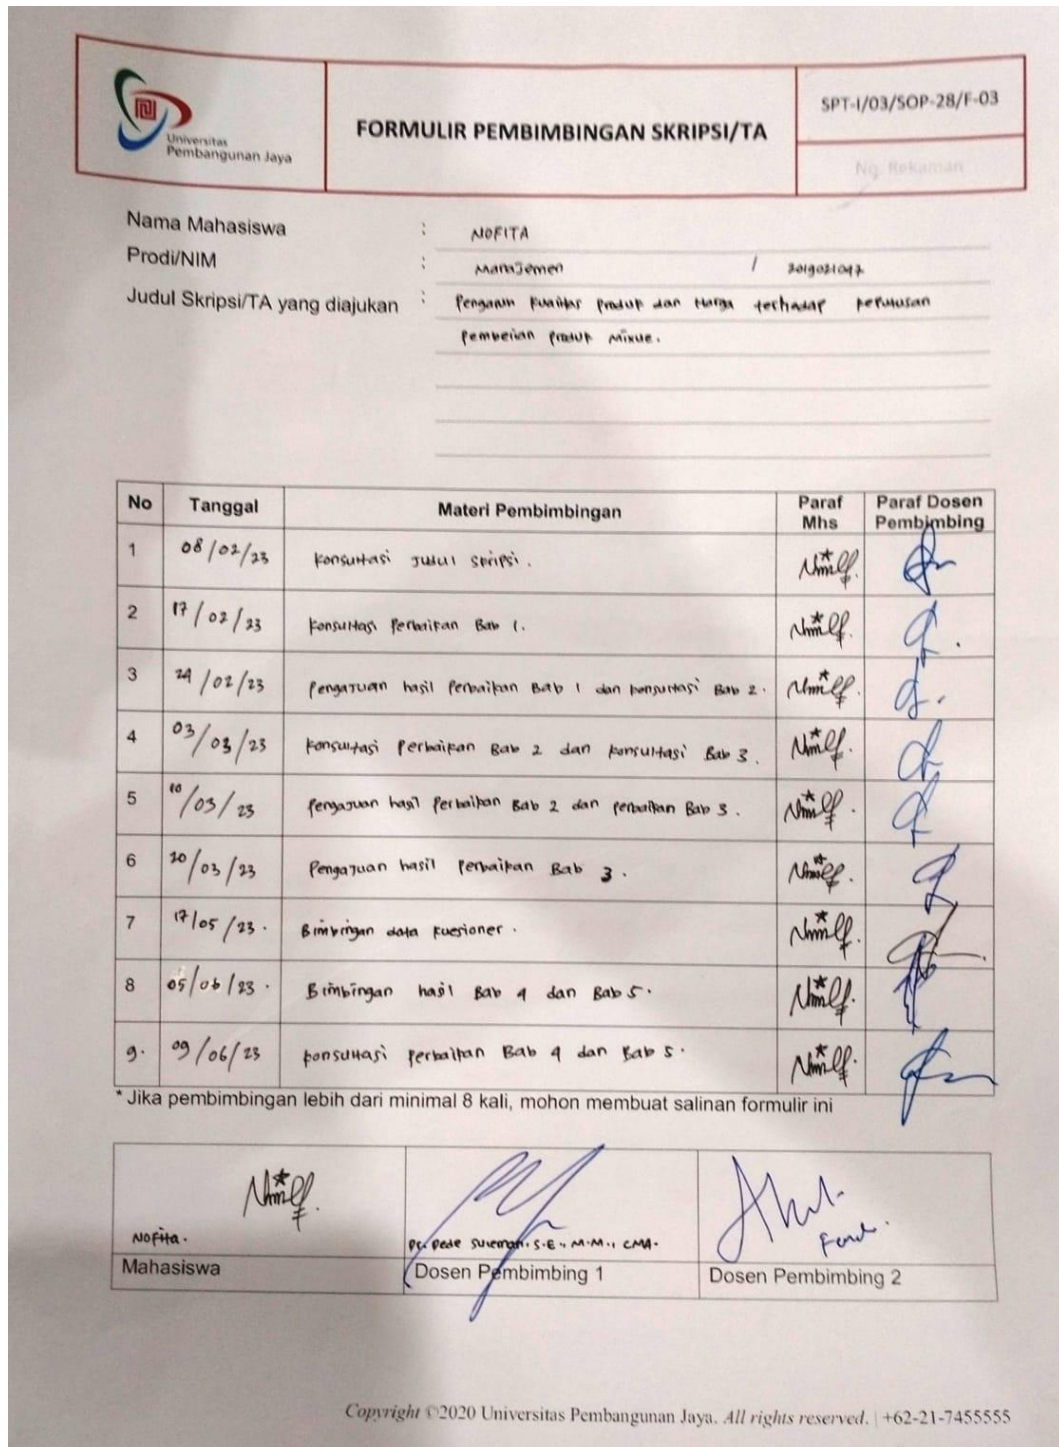 Universitas
Pembangunan Jaya
FORMULIR PEMBIMBINGAN SKRIPSI/TA
SPT-I/03/SOP-28/F-03
No. Rekaman
Nama Mahasiswa : NOFITA
Prodi/NIM : Manajemen / 2019021047
Judul Skripsi/TA yang diajukan : Pengaruh Kualitas Produk dan Harga terhadap keputusan
pembelian produk Mixue.
No Tanggal Materi Pembimbingan Paraf Mhs Paraf Dosen Pembimbing
1 08/02/23 Konsultasi Judul skripsi.
2 17/02/23 Konsultasi Perbaikan Bab 1.
3 24/02/23 Pengajuan hasil Perbaikan Bab 1 dan konsultasi Bab 2.
4 03/03/23 Konsultasi Perbaikan Bab 2 dan konsultasi Bab 3.
5 10/03/23 Pengajuan hasil Perbaikan Bab 2 dan perbaikan Bab 3.
6 20/03/23 Pengajuan hasil Perbaikan Bab 3.
7 17/05/23. Bimbingan data kuesioner.
8 05/06/23. Bimbingan hasil Bab 4 dan Bab 5.
9. 09/06/23 Konsultasi Perbaikan Bab 4 dan Bab 5.
* Jika pembimbingan lebih dari minimal 8 kali, mohon membuat salinan formulir ini
Nofita. Dr. Dede Suleman, S.E., M.M., CMA.
Mahasiswa Dosen Pembimbing 1 Dosen Pembimbing 2
Copyright ©2020 Universitas Pembangunan Jaya. All rights reserved. | +62-21-7455555